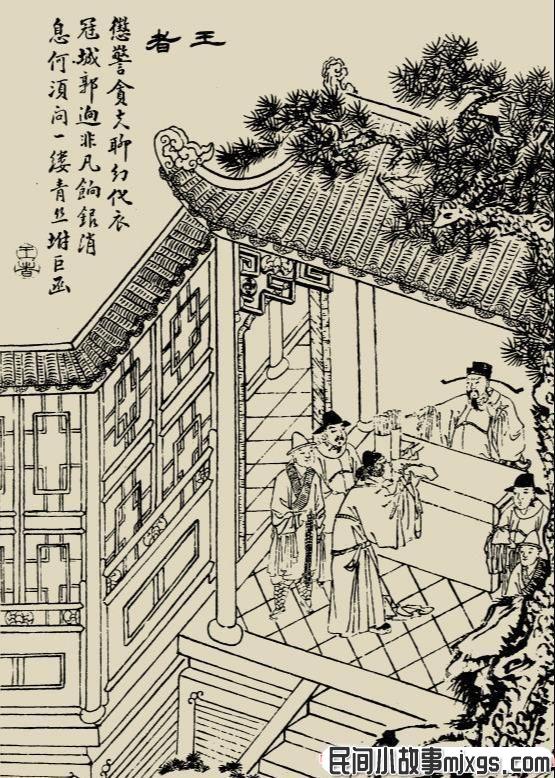 王者
懲警貪夫聊幻化衣
冠城郭迥非凡餉銀消
息何須问一縷青丝坿巨函
王者
民间小故事mixgs.com